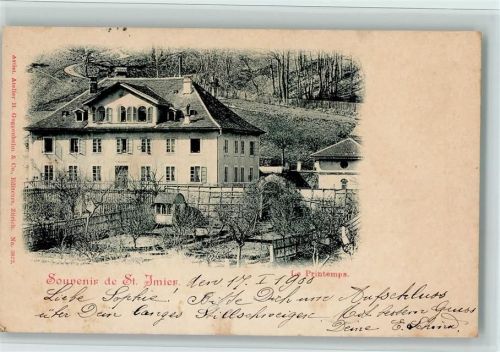 Artist. Atelier H. Guggenheim & Co., Editeurs, Zürich. No. 3872.
Souvenir de St. Imier.
Le Printemps.
den 17. I 1900
Liebe Sophie Bitte Dich um Aufschluss
über Dein langes Stillschweigen Mit bestem Gruss
Deine E.